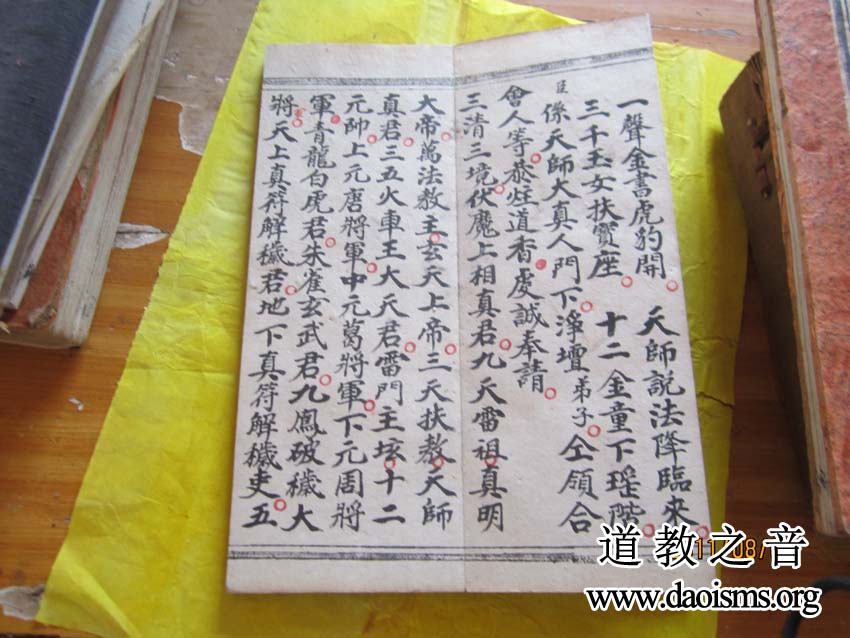 一聲金書虎豹開 天師說法降臨來
三千玉女扶寳座 十二金童下瑶階
臣係天師大真人門下淨壇弟子仝領合
會人等恭炷道香虔誠奉請
三清三境伏魔上相真君九天雷祖真明
大帝萬法教主玄天上帝三天扶教天師
真君三五火車王大天君雷門主坛十二
元帥上元唐將軍中元葛將軍下元周將
軍青龍白虎君朱雀玄武君九鳳破穢大
將天上真符解穢君地下真符解穢吏五
道教之音
www.daoisms.org